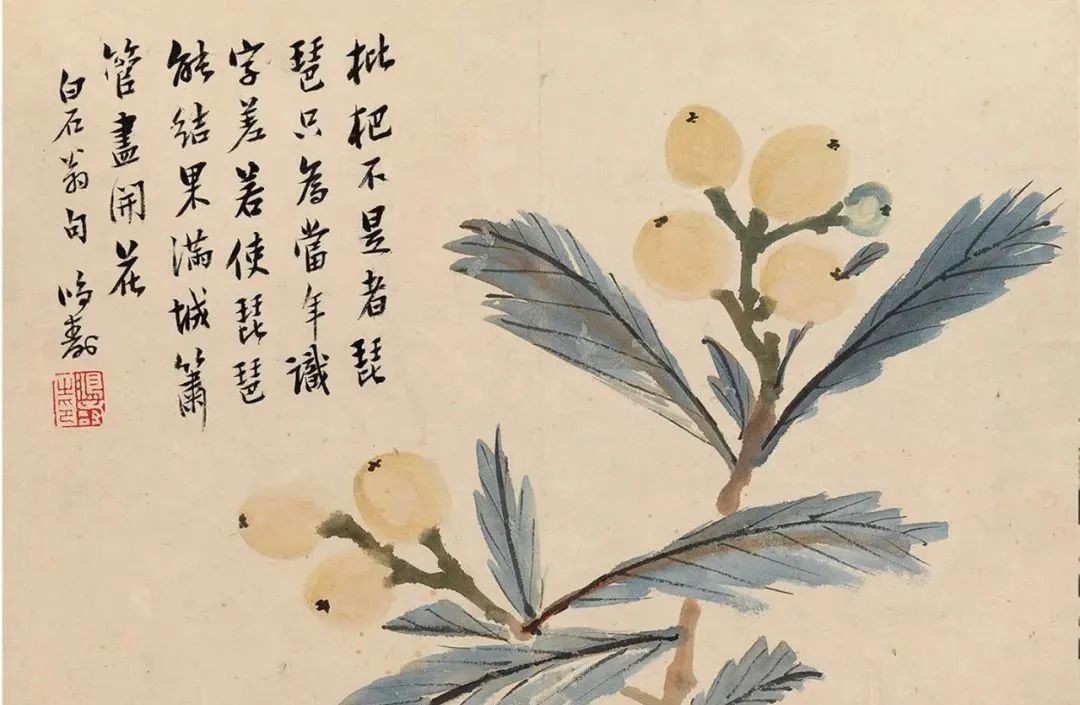 枇杷不是者琵
琶只為當年識
字差若使琵琶
能結果滿城簫
管盡開花
白石翁句